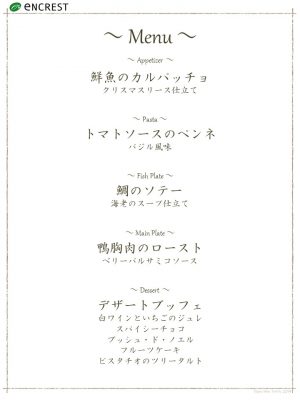 encrest
~ Menu ~
~ Appetizer ~
鮮魚のカルパッチョ
クリスマスリース仕立て
~ Pasta ~
トマトソースのペンネ
バジル風味
~ Fish Plate ~
鯛のソテー
海老のスープ仕立て
~ Main Plate ~
鴨胸肉のロースト
ベリーバルサミコソース
~ Dessert ~
デザートブッフェ
白ワインといちごのジュレ
スパイシーチョコ
ブッシュ・ド・ノエル
フルーツケーキ
ピスタチオのツリータルト